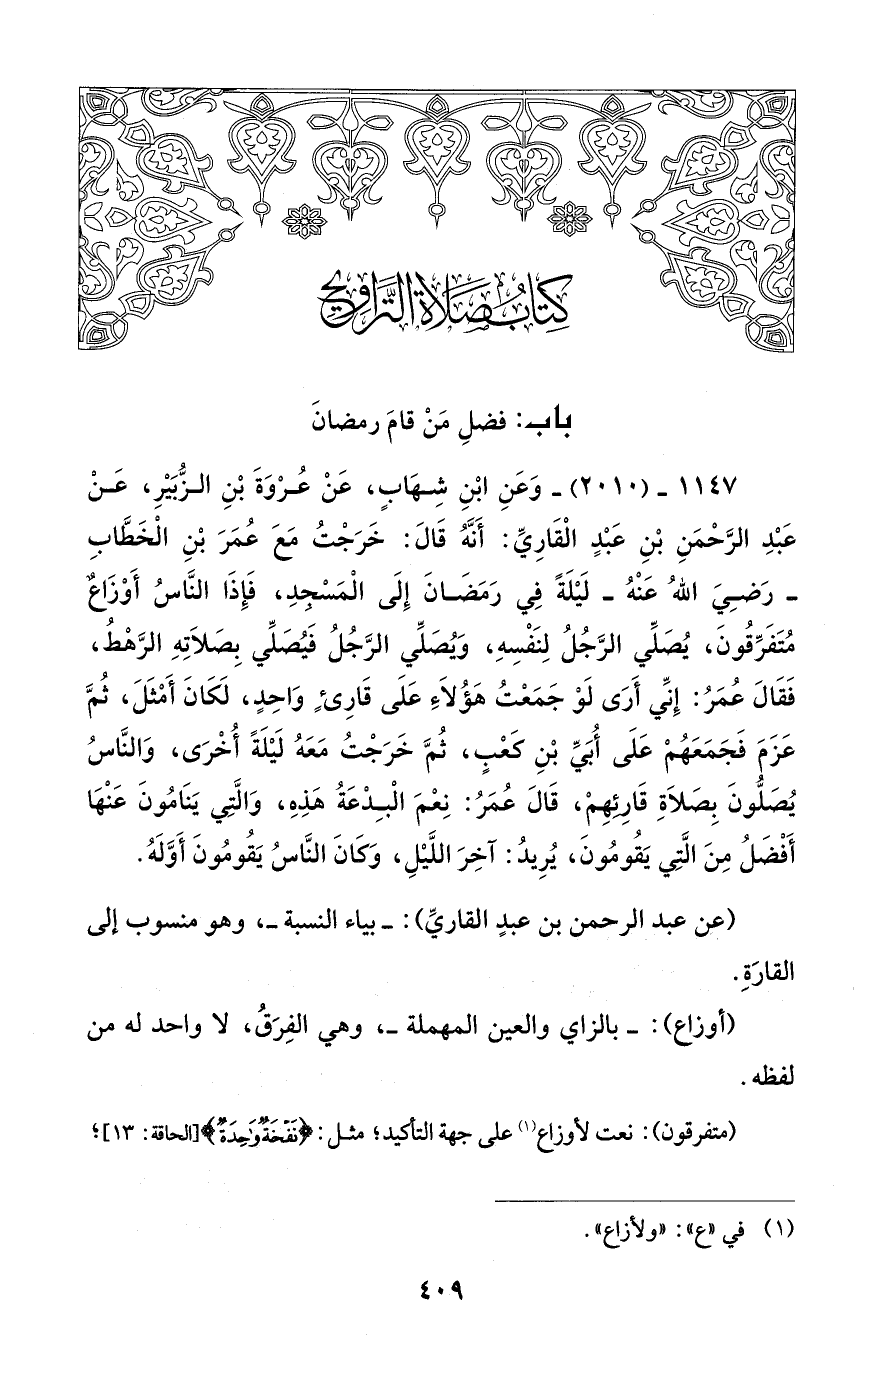 كِتابُ صَلاةِ التَّراويح
باب: فضلِ مَنْ قامَ رمضانَ
١١٤٧ ـ (٢٠١٠) ـ وَعَنِ ابْنِ شِهَابٍ، عَنْ عُرْوَةَ بْنِ الزُّبَيْرِ، عَنْ
عَبْدِ الرَّحْمَنِ بْنِ عَبْدٍ الْقَارِيِّ: أَنَّهُ قَالَ: خَرَجْتُ مَعَ عُمَرَ بْنِ الْخَطَّابِ
ـ رَضِيَ اللهُ عَنْهُ ـ لَيْلَةً فِي رَمَضَانَ إِلَى الْمَسْجِدِ، فَإِذَا النَّاسُ أَوْزَاعٌ
مُتَفَرِّقُونَ، يُصَلِّي الرَّجُلُ لِنَفْسِهِ، وَيُصَلِّي الرَّجُلُ فَيُصَلِّي بِصَلاَتِهِ الرَّهْطُ،
فَقَالَ عُمَرُ: إِنِّي أَرَى لَوْ جَمَعْتُ هَؤُلاَءِ عَلَى قَارِئٍ وَاحِدٍ، لَكَانَ أَمْثَلَ، ثُمَّ
عَزَمَ فَجَمَعَهُمْ عَلَى أُبَيِّ بْنِ كَعْبٍ، ثُمَّ خَرَجْتُ مَعَهُ لَيْلَةً أُخْرَى، وَالنَّاسُ
يُصَلُّونَ بِصَلاَةِ قَارِئِهِمْ، قَالَ عُمَرُ: نِعْمَ الْبِدْعَةُ هَذِهِ، وَالَّتِي يَنَامُونَ عَنْهَا
أَفْضَلُ مِنَ الَّتِي يَقُومُونَ، يُرِيدُ: آخِرَ اللَّيْلِ، وَكَانَ النَّاسُ يَقُومُونَ أَوَّلَهُ.
(عن عبد الرحمن بن عبدٍ القاريِّ): ـ بياء النسبة ـ، وهو منسوب إلى
القارَةِ.
(أوزاع): ـ بالزاي والعين المهملة ـ، وهي الفِرَقُ، لا واحد له من
لفظه.
(متفرقون): نعت لأوزاع(١) على جهة التأكيد؛ مثل: ﴿نَفْخَةٌ وَٰحِدَةٌ﴾[الحاقة: ١٣]؛
(١) في «ع»: «ولأزاع».
٤٠٩